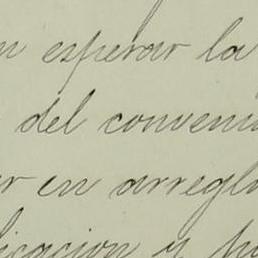 n esperar la
del conveni
r en arregl
licacion y